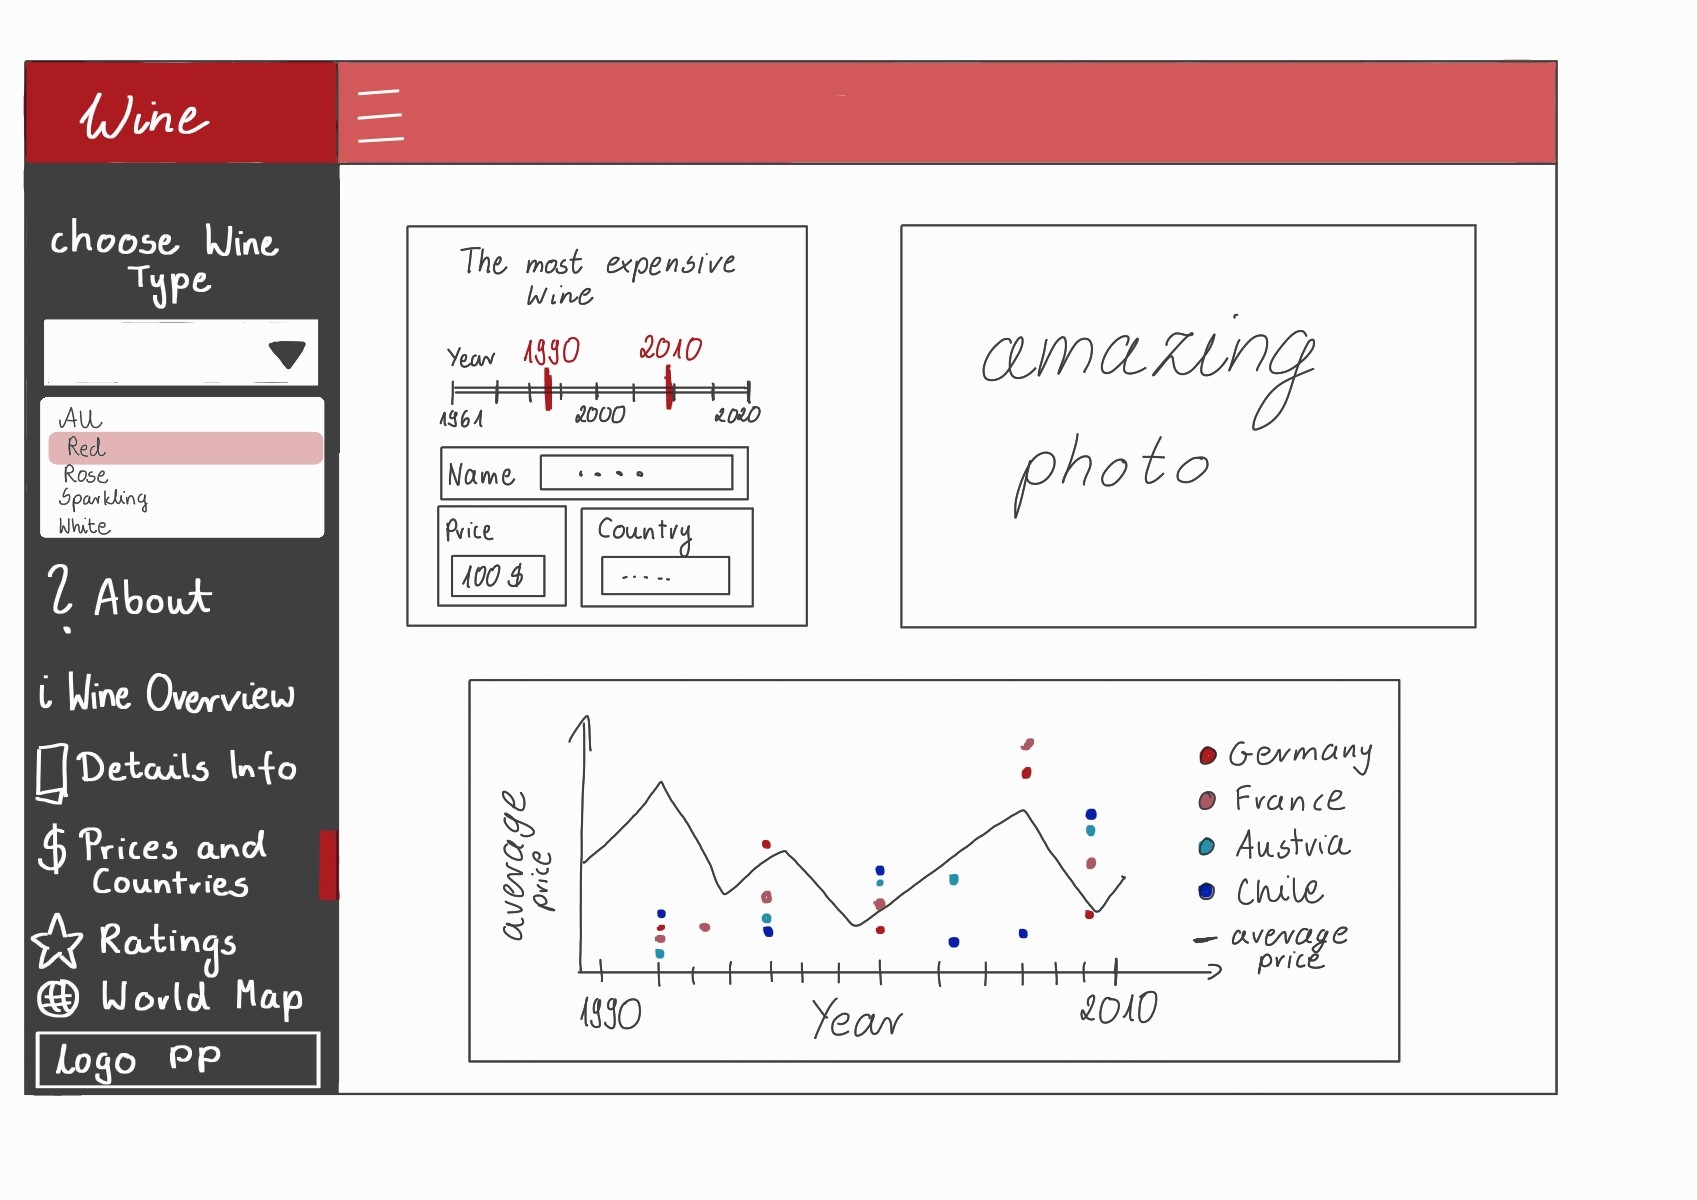 Wine
choose Wine
Type
All
Red
Rose
Sparkling
White
? About
i Wine Overview
Details Info
$ Prices and
Countries
Ratings
World Map
Logo PP
The most expensive
Wine
Year 1990 2010
1961 2000 2020
Name ....
Price Country
100 $ .....
amazing
photo
average
price
Germany
France
Austria
Chile
average
price
1990 Year 2010